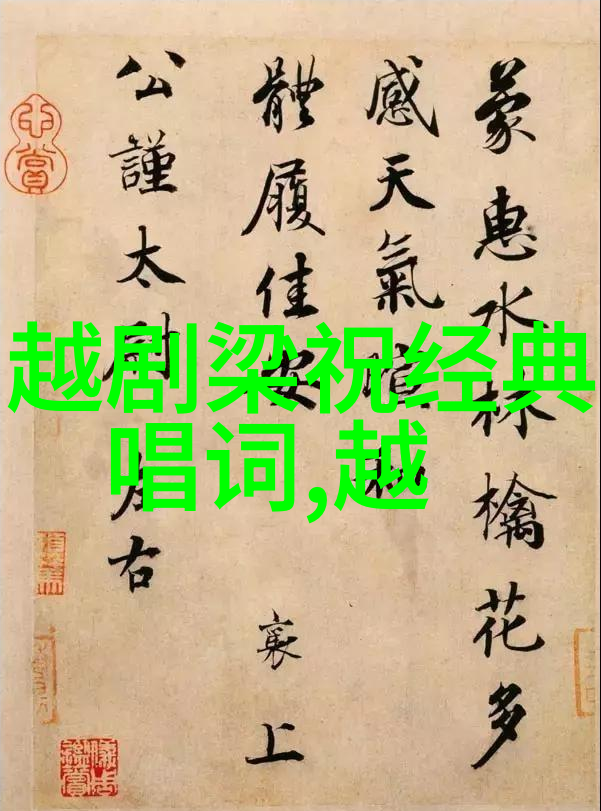 越剧梁祝经典
唱词,越
蒙惠水林檎花多
感天氣
體履佳安
襄上
公謹太尉左右